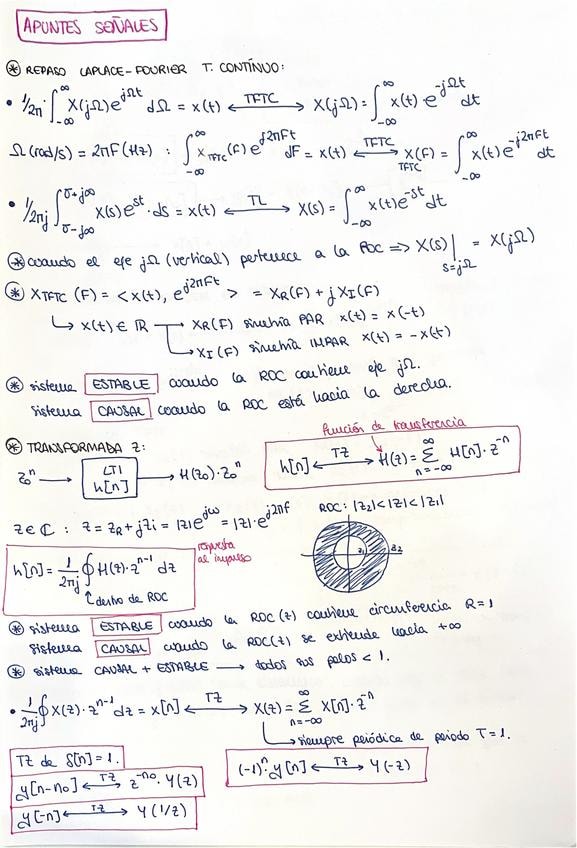 APUNTES SEÑALES
* REPASO LAPLACE-FOURIER T. CONTÍNUO:
• 1/2π · ∫_{-∞}^{∞} X(jΩ)e^{jΩt} dΩ = x(t) ←TFTC→ X(jΩ) = ∫_{-∞}^{∞} x(t)·e^{-jΩt} dt
Ω(rad/s) = 2πF(Hz) : ∫_{-∞}^{∞} X_{TFTC}(F) e^{j2πFt} dF = x(t) ←TFTC→ X_{TFTC}(F) = ∫_{-∞}^{∞} x(t) e^{-j2πFt} dt
• 1/2πj ∫_{σ-j∞}^{σ+j∞} X(s)e^{st}·ds = x(t) ←TL→ X(s) = ∫_{-∞}^{∞} x(t)e^{-st} dt
* cuando el eje jΩ (vertical) pertenece a la ROC ⇒ X(s)|_{s=jΩ} = X(jΩ)
* X_{TFTC}(F) = <x(t), e^{j2πFt}> = X_R(F) + jX_I(F)
↳ x(t) ∈ ℝ → X_R(F) simetría PAR x(t) = x(-t)
↳ X_I(F) simetría IMPAR x(t) = -x(t)
* sistema ESTABLE cuando la ROC contiene eje jΩ.
sistema CAUSAL cuando la ROC está hacia la derecha.
* TRANSFORMADA Z:
función de transferencia
z_0^n → LTI h[n] → H(z_0)·z_0^n
h[n] ←TZ→ H(z) = Σ_{n=-∞}^{∞} H[n]·z^{-n}
z ∈ ℂ : z = z_R + jz_i = |z|e^{jω} = |z|·e^{j2πf}
ROC: |z_2|<|z|<|z_1|
z_1 z_2
respuesta al impulso
h[n] = 1/2πj ∮ H(z)·z^{n-1} dz
↑ dentro de ROC
* sistema ESTABLE cuando la ROC(z) contiene circunferencia R=1
sistema CAUSAL cuando la ROC(z) se extiende hacia +∞
* sistema CAUSAL + ESTABLE → todos sus polos < 1.
• 1/2πj ∮ X(z)·z^{n-1} dz = x[n] ←TZ→ X(z) = Σ_{n=-∞}^{∞} X[n]·z^{-n}
↳ siempre periódica de periodo T=1.
TZ de δ[n] = 1.
y[n-n_0] ←TZ→ z^{-n_0}·Y(z)
(-1)^n·y[n] ←TZ→ Y(-z)
y[-n] ←TZ→ Y(1/z)